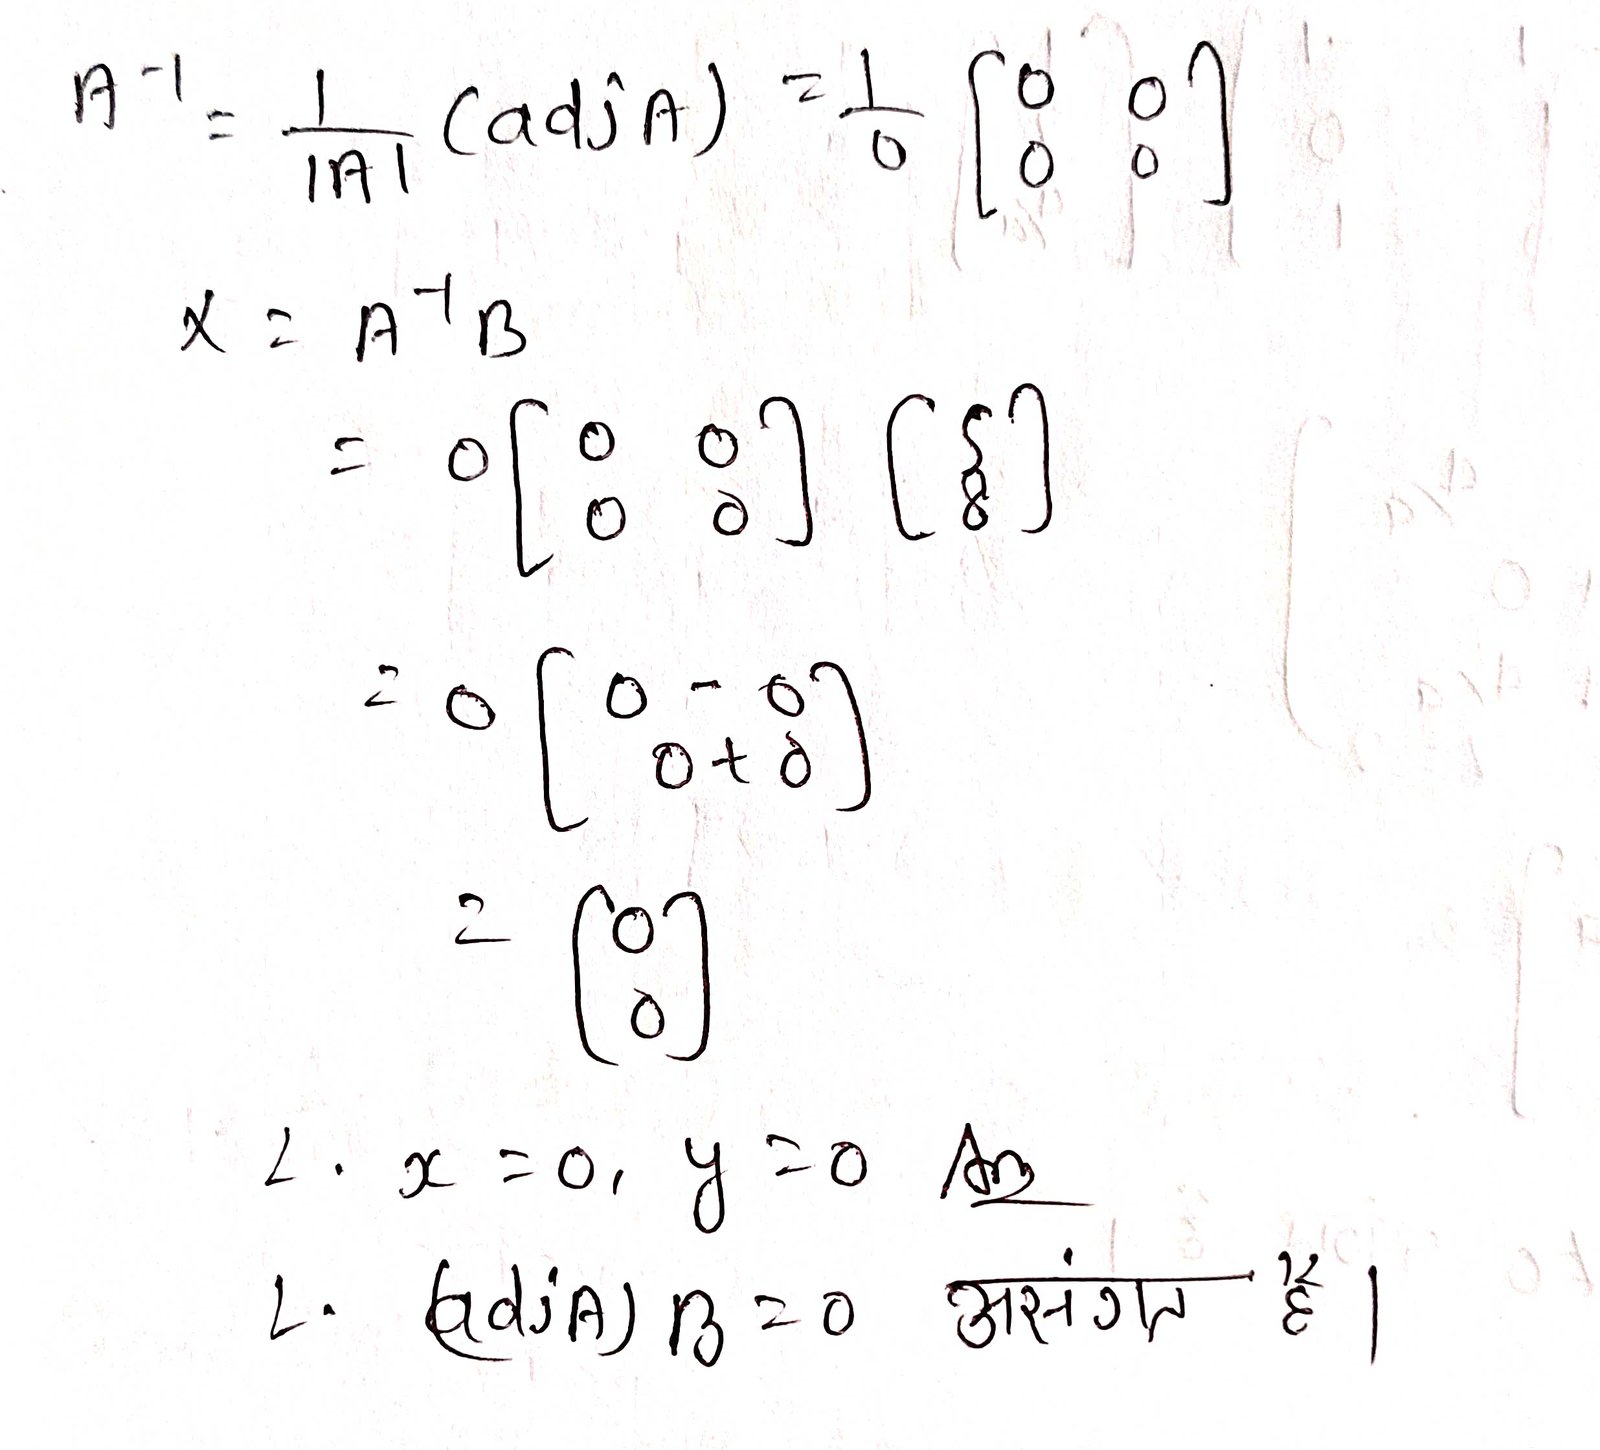 A⁻¹ = 1/|A| (adj A) = 1/0 [0 0; 0 0]
X = A⁻¹B
= 0 [0 0; 0 0] [5; 8]
= 0 [0 - 0; 0 + 0]
= [0; 0]
∴ x = 0, y = 0 Ans
∴ (adj A) B = 0 असंगत है।